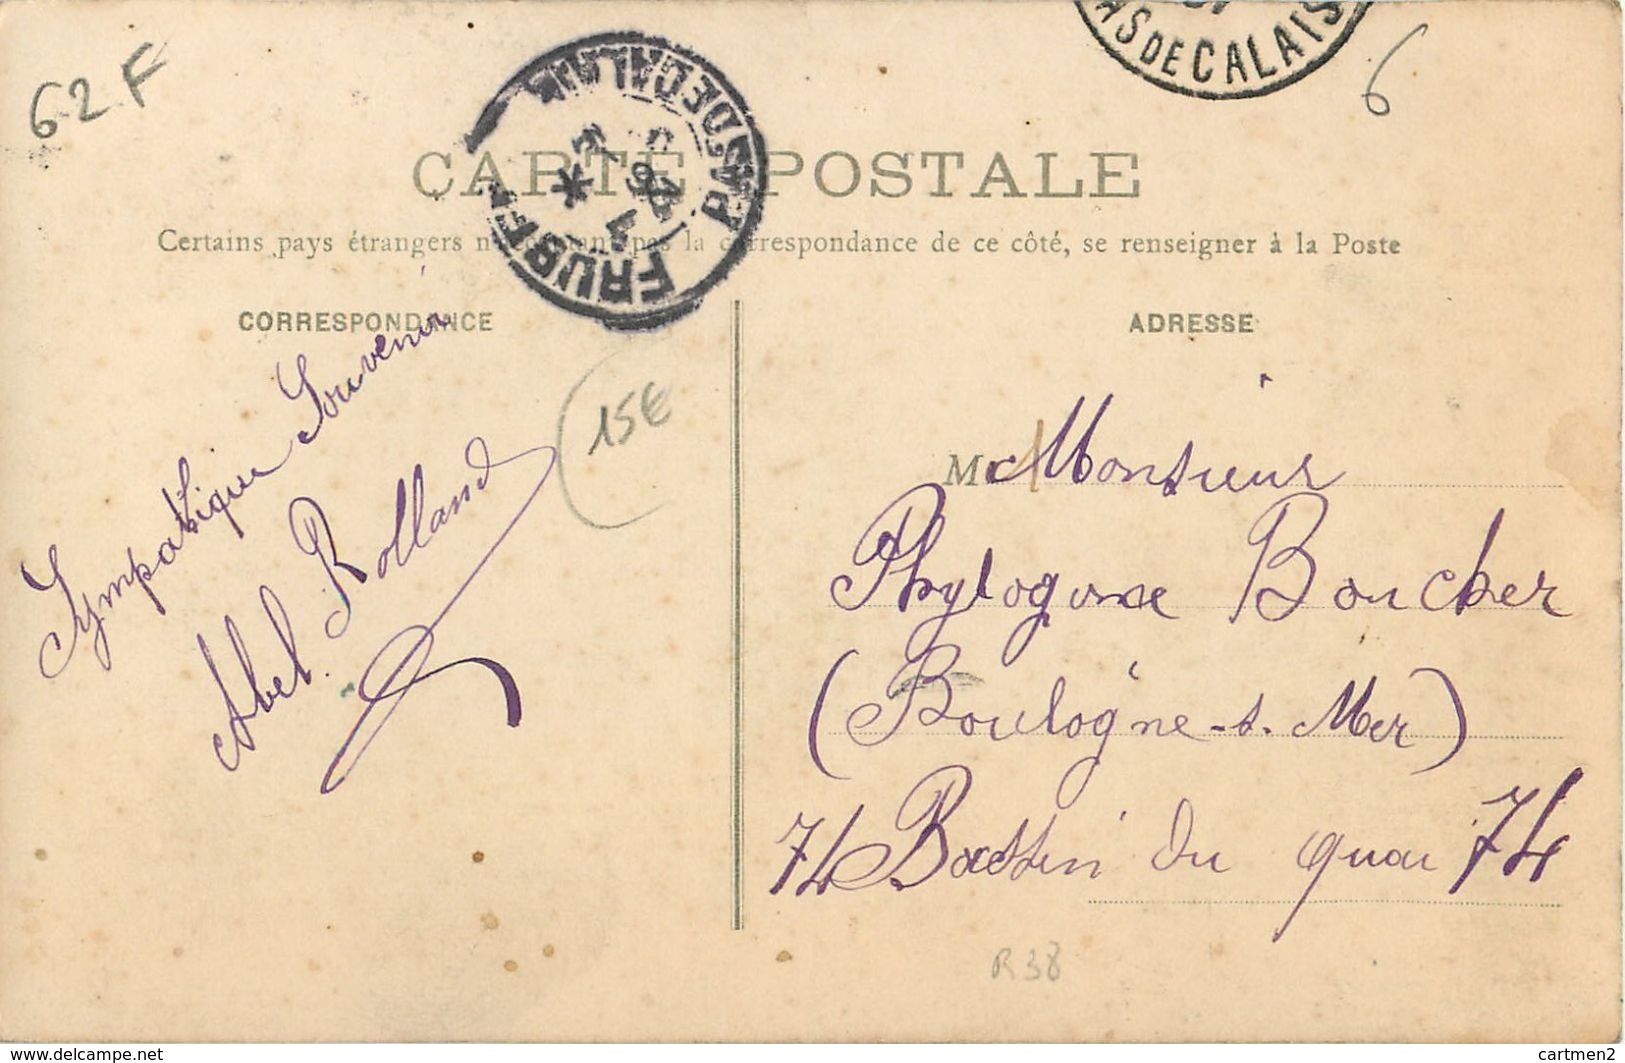 62 F
6
PAS DE CALAIS
AS DE CALAIS
CARTE POSTALE
FRUGES
Certains pays étrangers n'acceptant pas la correspondance de ce côté, se renseigner à la Poste
CORRESPONDANCE
ADRESSE
Sympatique Souvenir
Abel. Rolland
15€
M Monsieur
Phylogone Boucher
(Boulogne-s. Mer)
74 Bassin du quai 74
R38
www.delcampe.net
cartmen2